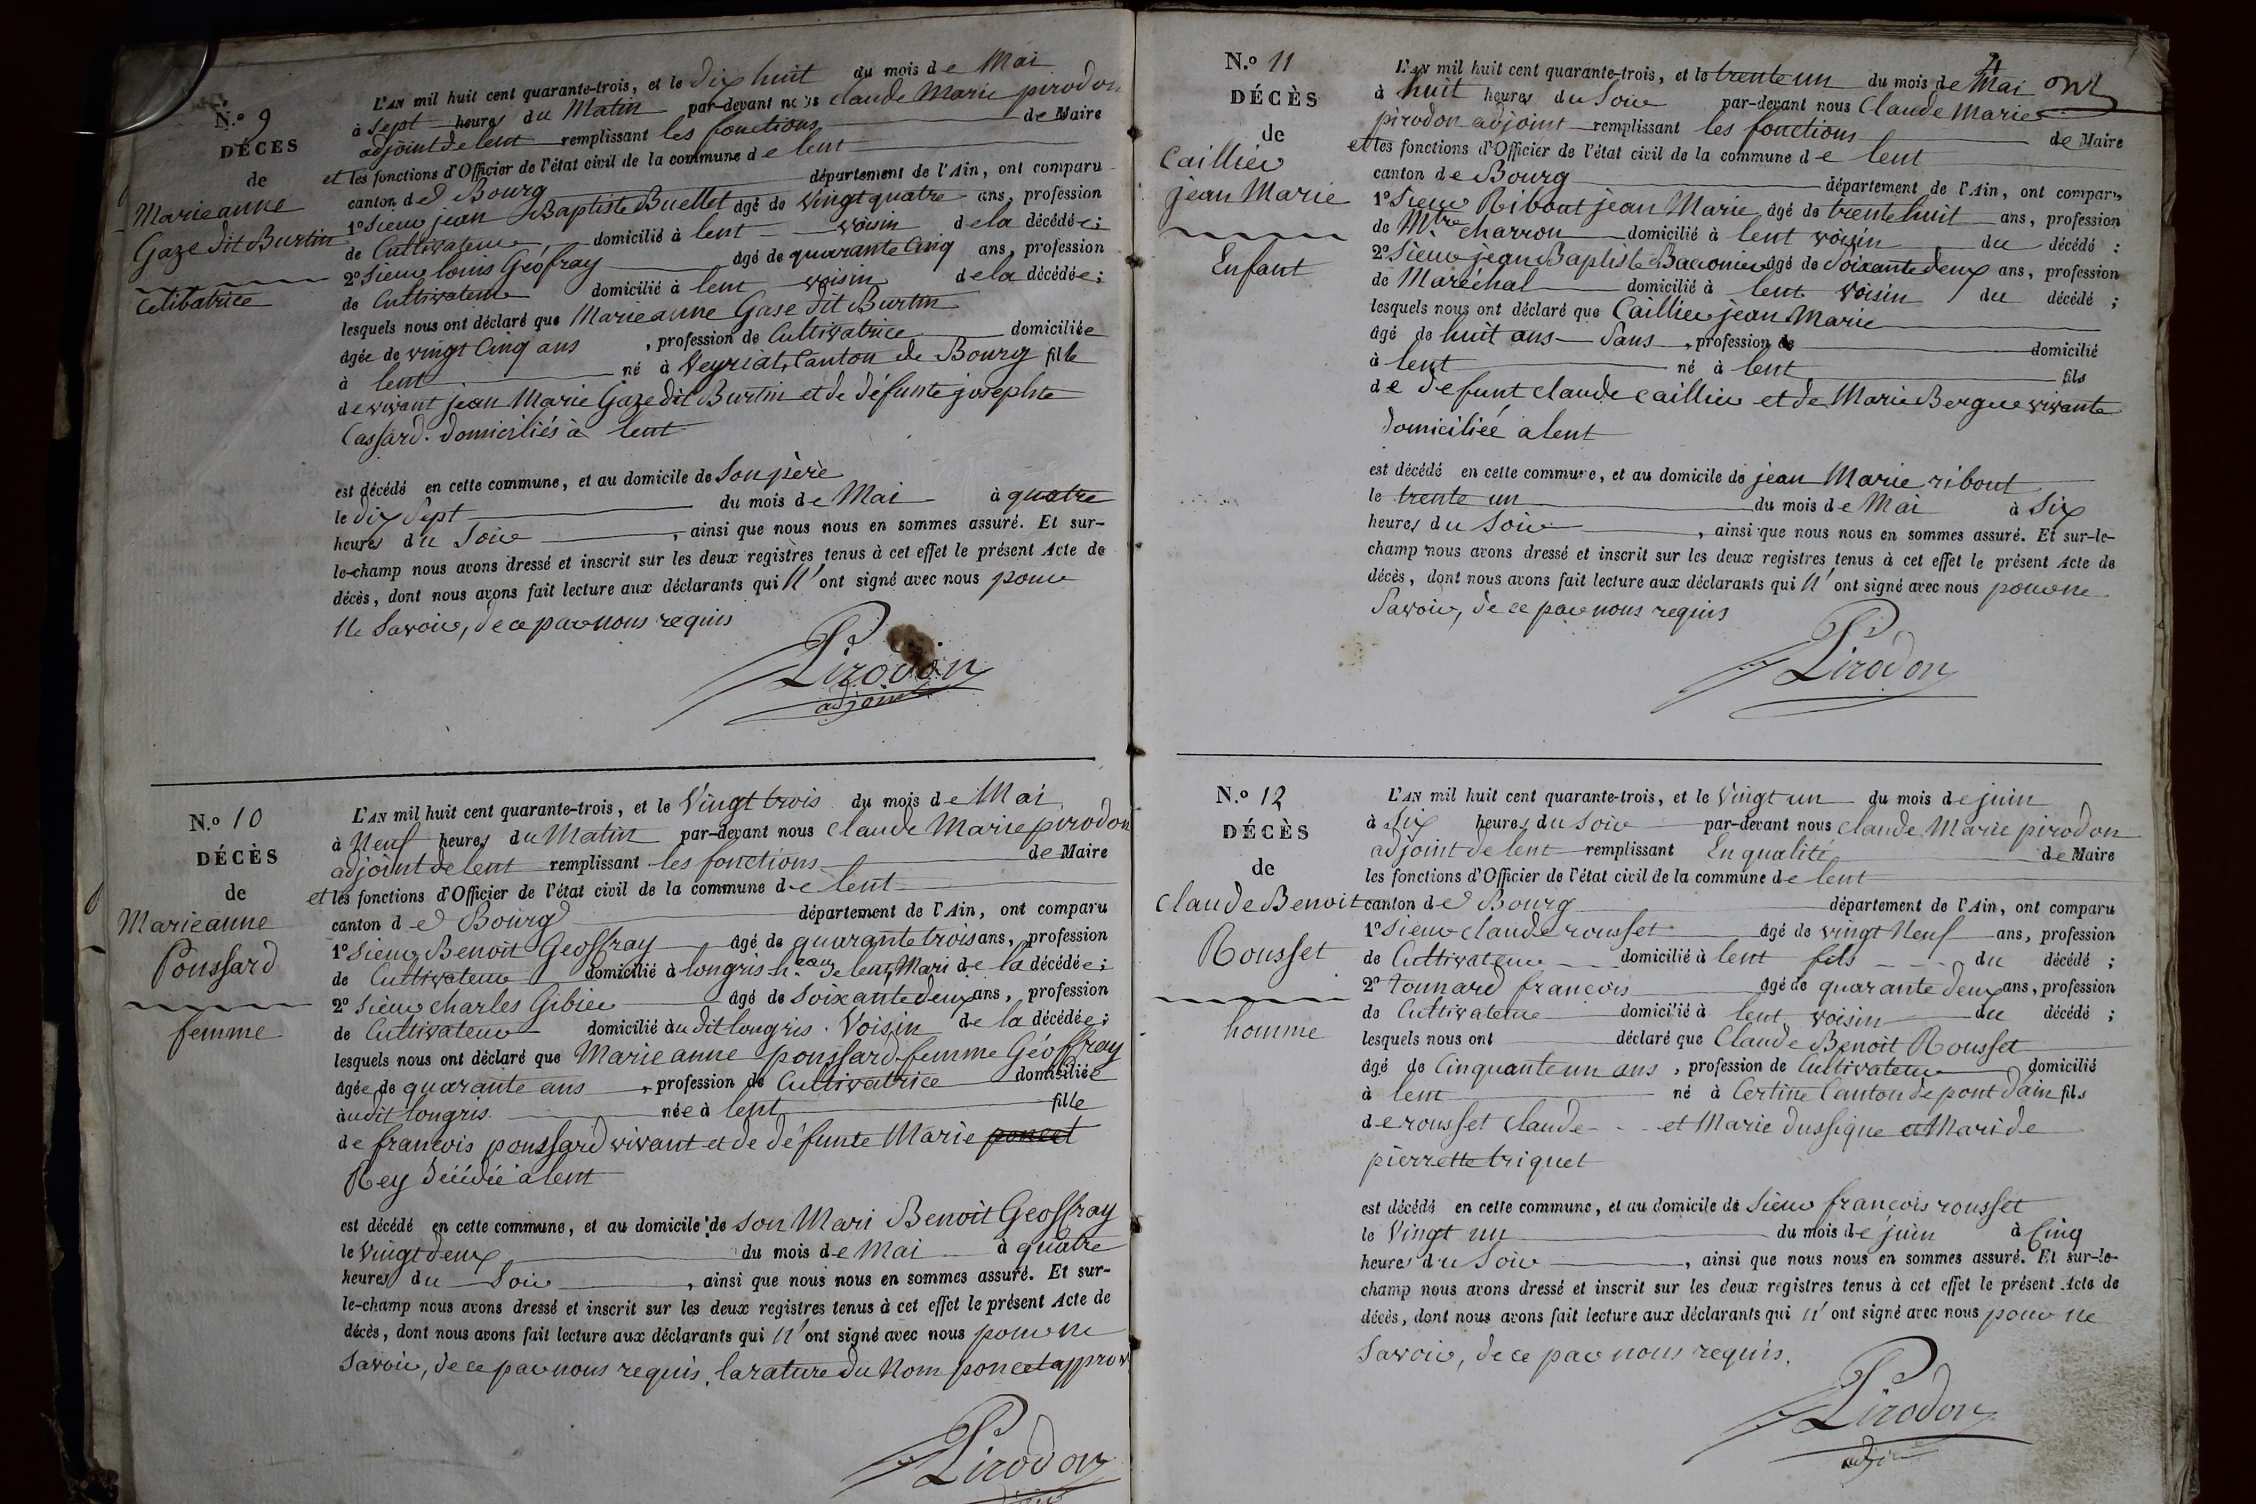 N.º 9
DÉCÈS
de
Marieanne
Gaze dit Burtin
Celibatrice
L'AN mil huit cent quarante-trois, et le dix huit du mois de Mai
à Sept heures du Matin par-devant nous Claude Marie pirodon
adjoint de lent remplissant les fonctions de Maire
et les fonctions d'Officier de l'état civil de la commune de lent
canton de Bourg département de l'Ain, ont comparu
1º Sieur jean Baptiste Buellet âgé de Vingt quatre ans, profession
de Cultivateur domicilié à lent voisin de la décédée;
2º Sieur louis Géofray âgé de quarante Cinq ans, profession
de Cultivateur domicilié à lent voisin de la décédée;
lesquels nous ont déclaré que Marieanne Gase dit Burtin
âgée de vingt Cinq ans, profession de Cultivatrice domiciliée
à lent né à Veyriat, Canton de Bourg fille
de vivant jean Marie Gaze dit Burtin et de défunte josephte
Cassard. domiciliés à lent
est décédé en cette commune, et au domicile de Son père
le dix Sept du mois de Mai à quatre
heures du Soir, ainsi que nous nous en sommes assuré. Et sur-
le-champ nous avons dressé et inscrit sur les deux registres tenus à cet effet le présent Acte de
décès, dont nous avons fait lecture aux déclarants qui N'ont signé avec nous pour
Ne Savoir, de ce par nous requis
Pirodon
adjoint
N.º 10
DÉCÈS
de
Marieanne
Poussard
femme
L'AN mil huit cent quarante-trois, et le Vingt trois du mois de Mai
à Neuf heures du Matin par-devant nous Claude Marie pirodon
adjoint de lent remplissant les fonctions de Maire
et les fonctions d'Officier de l'état civil de la commune de lent
canton de Bourg département de l'Ain, ont comparu
1º Sieur Benoit Geoffray âgé de quarante trois ans, profession
de Cultivateur domicilié à longris h.eau de lent, Mari de la décédée;
2º Sieur Charles Gibier âgé de Soixante deux ans, profession
de Cultivateur domicilié au dit longris. Voisin de la décédée;
lesquels nous ont déclaré que Marie anne poussard femme Géoffray
âgée de quarante ans, profession de Cultivatrice domiciliée
audit longris née à lent fille
de francois poussard vivant et de défunte Marie poncet
Rey décédée à lent
est décédé en cette commune, et au domicile de son Mari Benoit Geoffray
le Vingt deux du mois de Mai à quatre
heures du Soir, ainsi que nous nous en sommes assuré. Et sur-
le-champ nous avons dressé et inscrit sur les deux registres tenus à cet effet le présent Acte de
décès, dont nous avons fait lecture aux déclarants qui N'ont signé avec nous pour ne
Savoir, de ce par nous requis. la rature du Nom poncet approv
Pirodon
4
N.º 11
DÉCÈS
de
Caillier
jean Marie
Enfant
L'AN mil huit cent quarante-trois, et le trente un du mois de Mai
à huit heures du Soir par-devant nous Claude Marie
pirodon adjoint remplissant les fonctions de Maire
et les fonctions d'Officier de l'état civil de la commune de lent
canton de Bourg département de l'Ain, ont comparu
1º Sieur Ribout jean Marie âgé de trente huit ans, profession
de M.tre charron domicilié à lent voisin du décédé:
2º Sieur jean Baptiste Baconier âgé de Soixante deux ans, profession
de Maréchal domicilié à lent Voisin du décédé;
lesquels nous ont déclaré que Caillier jean Marie
âgé de huit ans Sans, profession de domicilié
à lent né à lent fils
de defunt claude caillier et de Marie Bergue vivante
domiciliée à lent
est décédé en cette commune, et au domicile de jean Marie ribout
le trente un du mois de Mai à Six
heures du Soir, ainsi que nous nous en sommes assuré. Et sur-le-
champ nous avons dressé et inscrit sur les deux registres tenus à cet effet le présent Acte de
décès, dont nous avons fait lecture aux déclarants qui N'ont signé avec nous pour ne
Savoir, de ce par nous requis
Pirodon
N.º 12
DÉCÈS
de
Claude Benoit
Rousset
homme
L'AN mil huit cent quarante-trois, et le Vingt un du mois de juin
à Six heures du Soir par-devant nous Claude Marie pirodon
adjoint de lent remplissant En qualité de Maire
les fonctions d'Officier de l'état civil de la commune de lent
canton de Bourg département de l'Ain, ont comparu
1º Sieur Claude rousset âgé de vingt Neuf ans, profession
de Cultivateur domicilié à lent fils du décédé;
2º tounard francois âgé de quarante deux ans, profession
de Cultivateur domicilié à lent voisin du décédé;
lesquels nous ont déclaré que Claude Benoit Rousset
âgé de Cinquante un ans, profession de Cultivateur domicilié
à lent né à Certine Canton de pont dain fils
de rousset claude et Marie dussigue et Mari de
pierrette triquet
est décédé en cette commune, et au domicile de Sieur francois rousset
le Vingt un du mois de juin à Cinq
heures du Soir, ainsi que nous nous en sommes assuré. Et sur-le-
champ nous avons dressé et inscrit sur les deux registres tenus à cet effet le présent Acte de
décès, dont nous avons fait lecture aux déclarants qui N'ont signé avec nous pour ne
Savoir, de ce par nous requis.
Pirodon